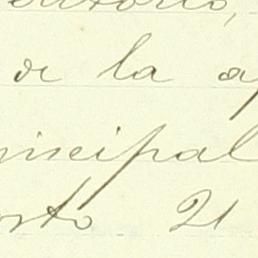 de la a
nicipal
osto 21